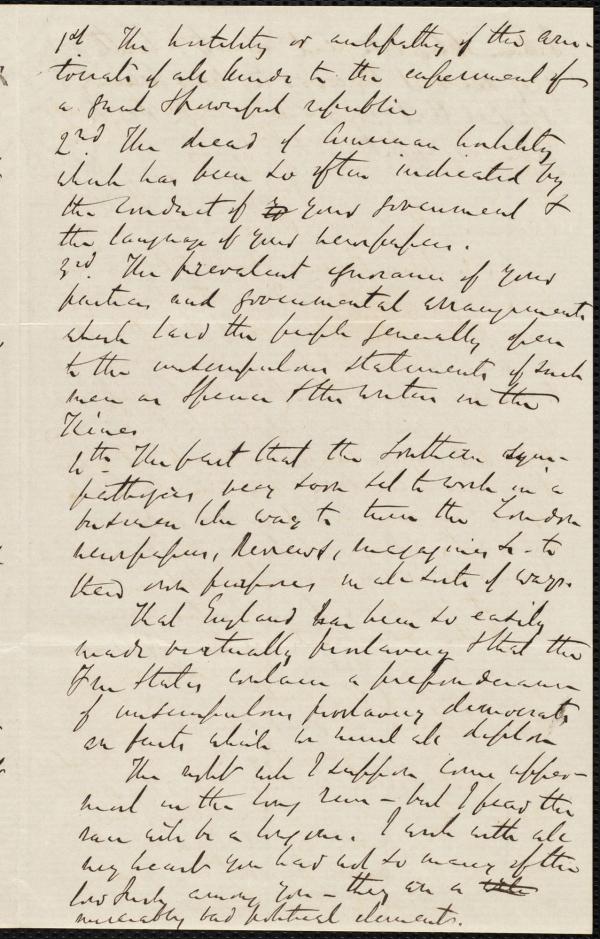 1st The hostility or antipathy of the aris-
tocrats of all kinds to the experiment of
a great & powerful republic
2nd. The dread of American hostility
which has been so often indicated by
the conduct of to your government &
the language of your newspapers.
3rd. The prevalent ignorance of your
parties and governmental arrangements
which laid the people generally open
to the unscrupulous statements of such
men as Spence & the writers in the
Times
4th The fact that the Southern sym-
pathizers very soon set to work in a
business like way to turn the London
newspapers, Reviews, magazines &c to
their own purposes in all sorts of ways.
That England has been so easily
made virtually proslavery & that the
Free States contain a preponderance
of unscrupulous proslavery democrats
are facts which we must all deplore
The right will I suppose come upper-
most in the long run – but I fear the
run will be a long one. I wish with all
my heart you had not so many of the
low Irish among you – they are a
miserably bad political elements.